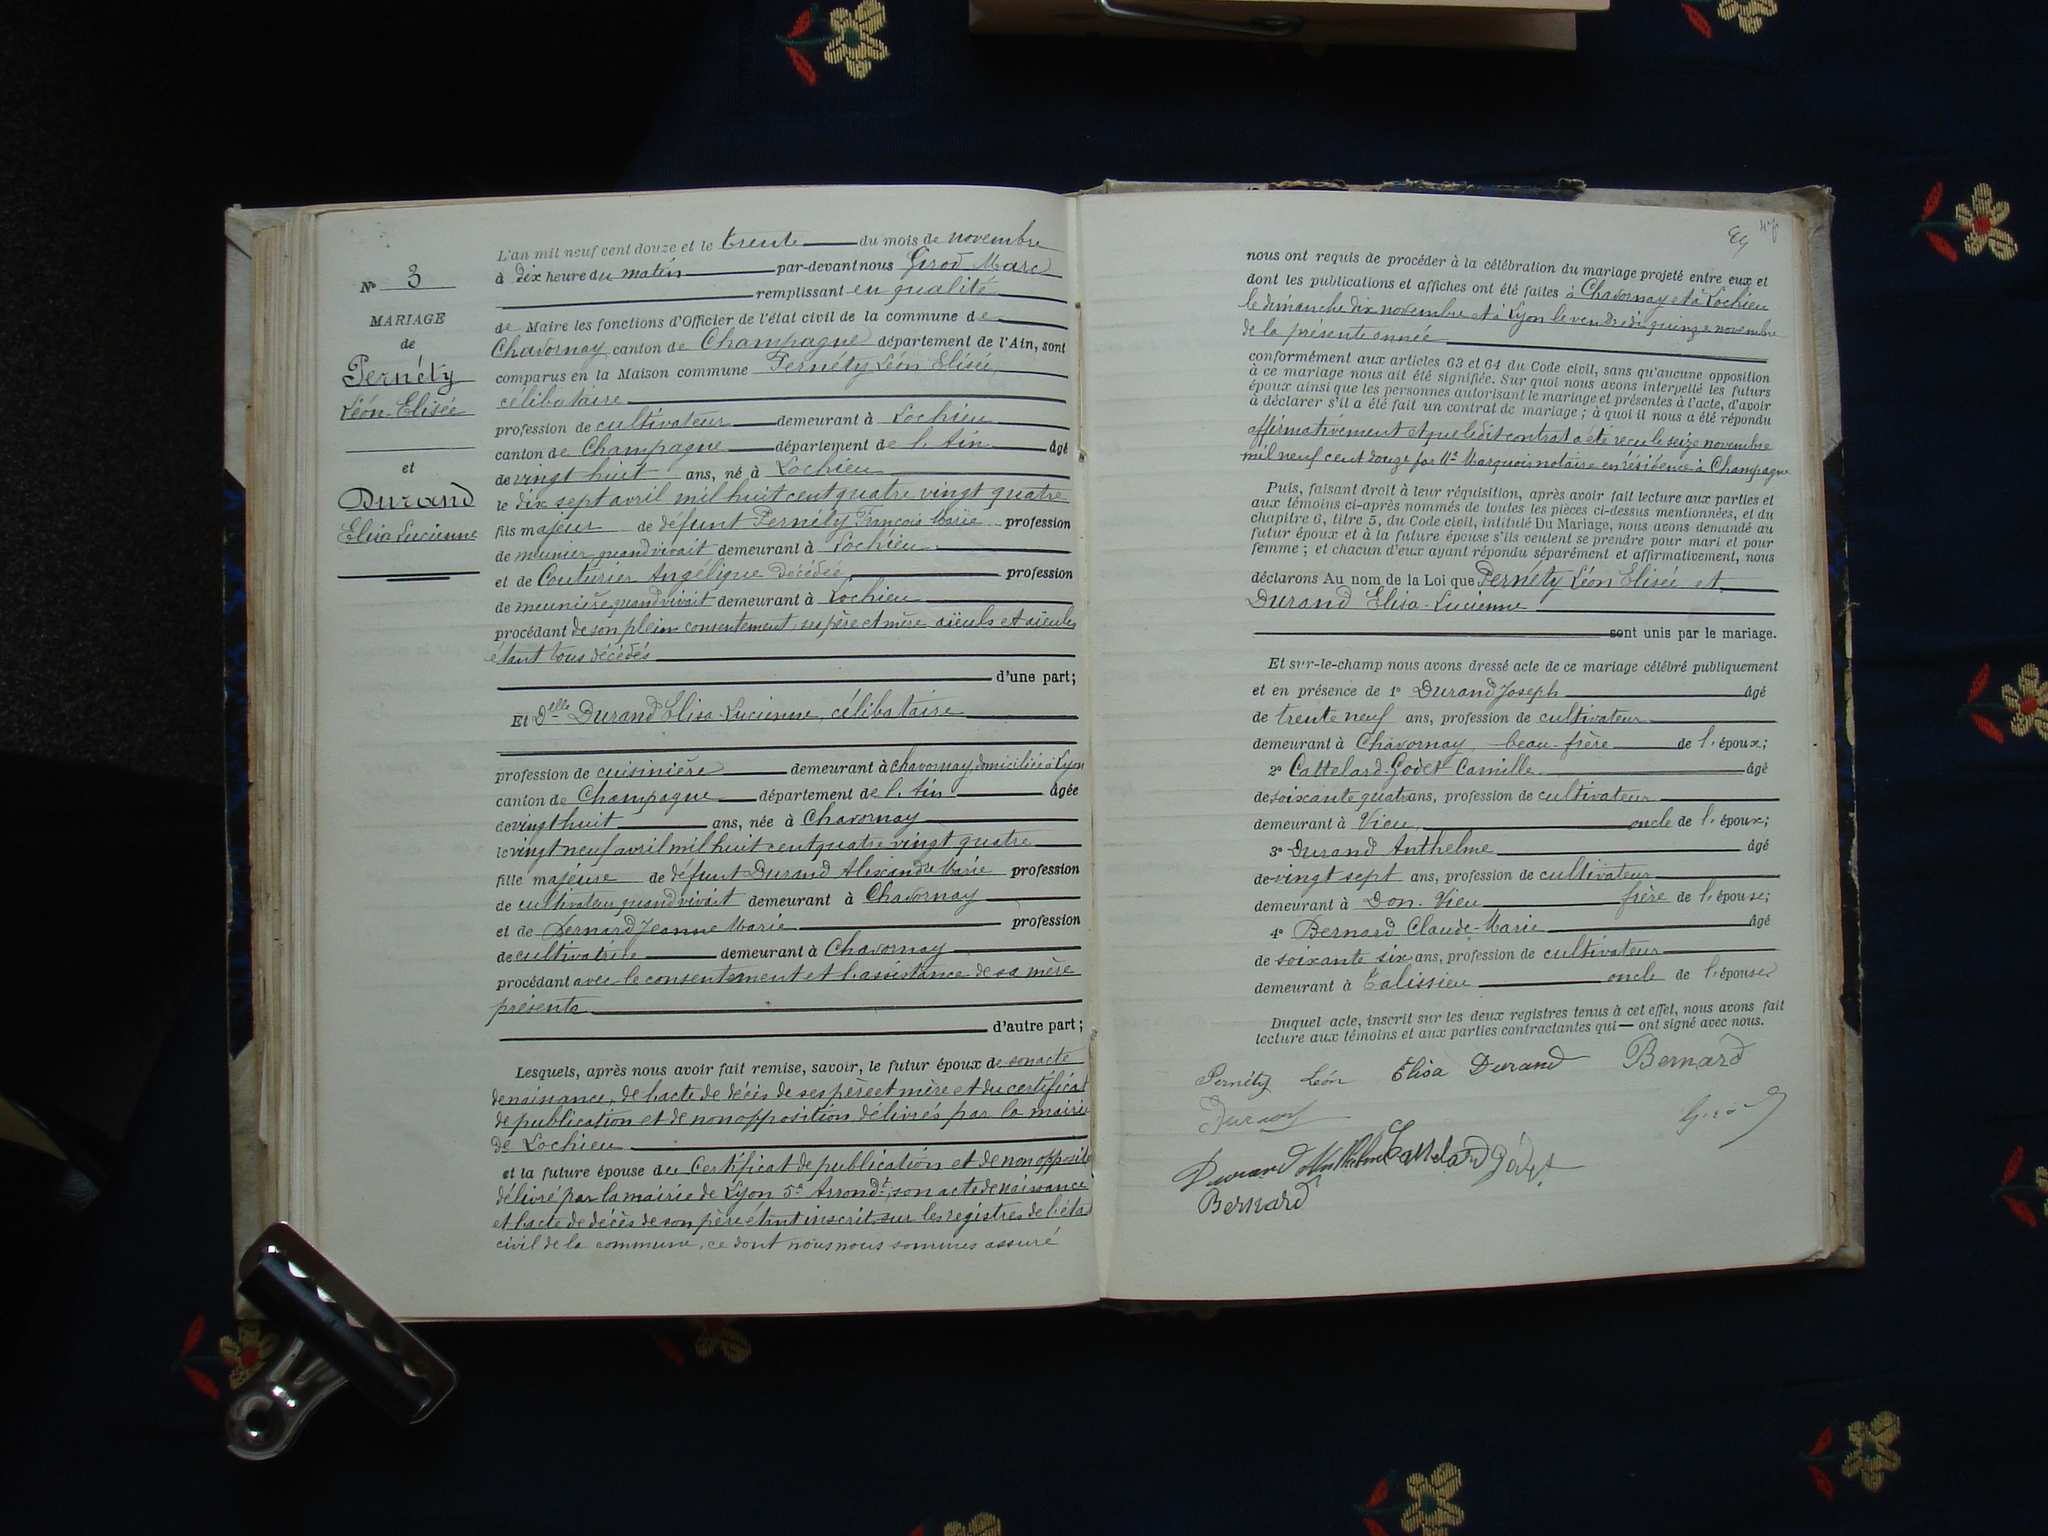 L'an mil neuf cent douze et le trente du mois de novembre
à dix heure du matin par-devant nous Girod Marc
remplissant en qualité
de Maire les fonctions d'Officier de l'état civil de la commune de
Chavornay canton de Champagne département de l'Ain, sont
comparus en la Maison commune Pernéty Léon Elisée,
célibataire
profession de cultivateur demeurant à Lochieu
canton de Champagne département de l'Ain âgé
de vingt huit ans, né à Lochieu
le dix sept avril mil huit cent quatre vingt quatre
fils majeur de défunt Pernéty François Marie profession
de meunier quand vivait demeurant à Lochieu
et de Couturier Angélique décédée, profession
de meunière quand vivait demeurant à Lochieu
procédant de son plein consentement, ses père et mère aïeuls et aïeules
étant tous décédés
d'une part;
Et Delle Durand Elisa-Lucienne, célibataire
profession de cuisinière demeurant à Chavornay, domiciliée à Lyon
canton de Champagne département de l'Ain âgée
de vingt huit ans, née à Chavornay
le vingt neuf avril mil huit cent quatre vingt quatre
fille majeure de défunt Durand Alexandre Marie profession
de cultivateur quand vivait demeurant à Chavornay
et de Bernard Jeanne Marie profession
de cultivatrice demeurant à Chavornay
procédant avec le consentement et l'assistance de sa mère
présente
d'autre part;
Lesquels, après nous avoir fait remise, savoir, le futur époux de son acte
de naissance, de l'acte de décès de ses père et mère et du certificat
de publication et de non opposition délivrés par la mairie
de Lochieu
et la future épouse du certificat de publication et de non opposition
délivré par la mairie de Lyon 5e Arrondt, son acte de naissance
et l'acte de décès de son père étant inscrit sur les registres de l'état
civil de la commune, ce dont nous nous sommes assuré
No 3
MARIAGE
de
Pernéty
Léon-Elisée
et
Durand
Elisa Lucienne
nous ont requis de procéder à la célébration du mariage projeté entre eux et
dont les publications et affiches ont été faites à Chavornay et à Lochieu
le dimanche dix novembre et à Lyon le vendredi quinze novembre
de la présente année
conformément aux articles 63 et 64 du Code civil, sans qu'aucune opposition
à ce mariage nous ait été signifiée. Sur quoi nous avons interpellé les futurs
époux ainsi que les personnes autorisant le mariage et présentes à l'acte, d'avoir
à déclarer s'il a été fait un contrat de mariage; à quoi il nous a été répondu
affirmativement et que ledit contrat a été reçu le seize novembre
mil neuf cent douze par Me Marquois notaire en résidence à Champagne
Puis, faisant droit à leur réquisition, après avoir fait lecture aux parties et
aux témoins ci-après nommés de toutes les pièces ci-dessus mentionnées, et du
chapitre 6, titre 5, du Code civil, intitulé Du Mariage, nous avons demandé au
futur époux et à la future épouse s'ils veulent se prendre pour mari et pour
femme; et chacun d'eux ayant répondu séparément et affirmativement, nous
déclarons Au nom de la Loi que Pernéty Léon Elisée et
Durand Elisa-Lucienne
sont unis par le mariage.
Et sur-le-champ nous avons dressé acte de ce mariage célébré publiquement
et en présence de 1o Durand Joseph âgé
de trente neuf ans, profession de cultivateur
demeurant à Chavornay, beau-frère de l'époux;
2o Cattelard-Godet Camille âgé
de soixante quatre ans, profession de cultivateur
demeurant à Vieu, oncle de l'époux;
3o Durand Anthelme âgé
de vingt sept ans, profession de cultivateur
demeurant à Don-Vieu frère de l'épouse;
4o Bernard Claude-Marie âgé
de soixante six ans, profession de cultivateur
demeurant à Talissieu oncle de l'épouse
Duquel acte, inscrit sur les deux registres tenus à cet effet, nous avons fait
lecture aux témoins et aux parties contractantes qui — ont signé avec nous.
Pernéty Léon Elisa Durand Bernard
Durand Girod
Durand Anthelme Cattelard Godet
Bernard